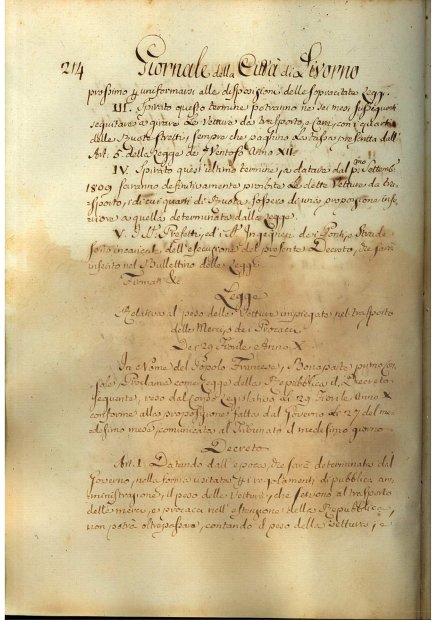 214 Giornale della Città di Livorno
prossimo p uniformarsi alle disposizioni delle sopracitate Leggi.
III. Spirato questo termine potranno ne' sei mesi susseguenti
seguitare a girare le Vetture da trasporto a fani, con i quarti
delle Ruote stretti, sempre che paghino la tassa prescritta dall'
Art. 5. della Legge de' Ventoso Anno XII.
IV. Spirato quest'ultimo termine, a datare dal pmo Settembre
1809 saranno definitivamente proibite le dette Vetture da tra-
sporto, i di cui quarti di Ruota fossero di una proporzione infe-
riore a quella determinata dalla legge.
V. I SS. Prefetti, ed i SS. Ingegneri de' Ponti, e Strade
sono incaricati dell'esecuzione del presente Decreto, che sarà
inserito nel Bullettino delle Leggi.
Firmat.
Legge
Relativa al peso delle Vetture impiegate nel trasporto
delle Merci, e dei Procacci
De' 29 Fiorile Anno X.
In Nome del Popolo Francese, Bonaparte primo Con-
sole Proclama come Legge della Repubblica il Decreto
seguente, reso dal Corpo Legislativo li 29 Fiorile Anno X
conforme alla proposizione fatta dal Governo li 27 del me-
desimo mese, comunicata al Tribunato il medesimo giorno
Decreto
Art. I. Datando dall'epoca, che sarà determinata dal
Governo, nella forma usitata p i regolamenti di pubblica am-
ministrazione, il peso delle Vetture, che servono al trasporto
delle merci, e procacci nell'estensione della Repubblica,
non potrà oltrepassare, contando il peso della vettura, e